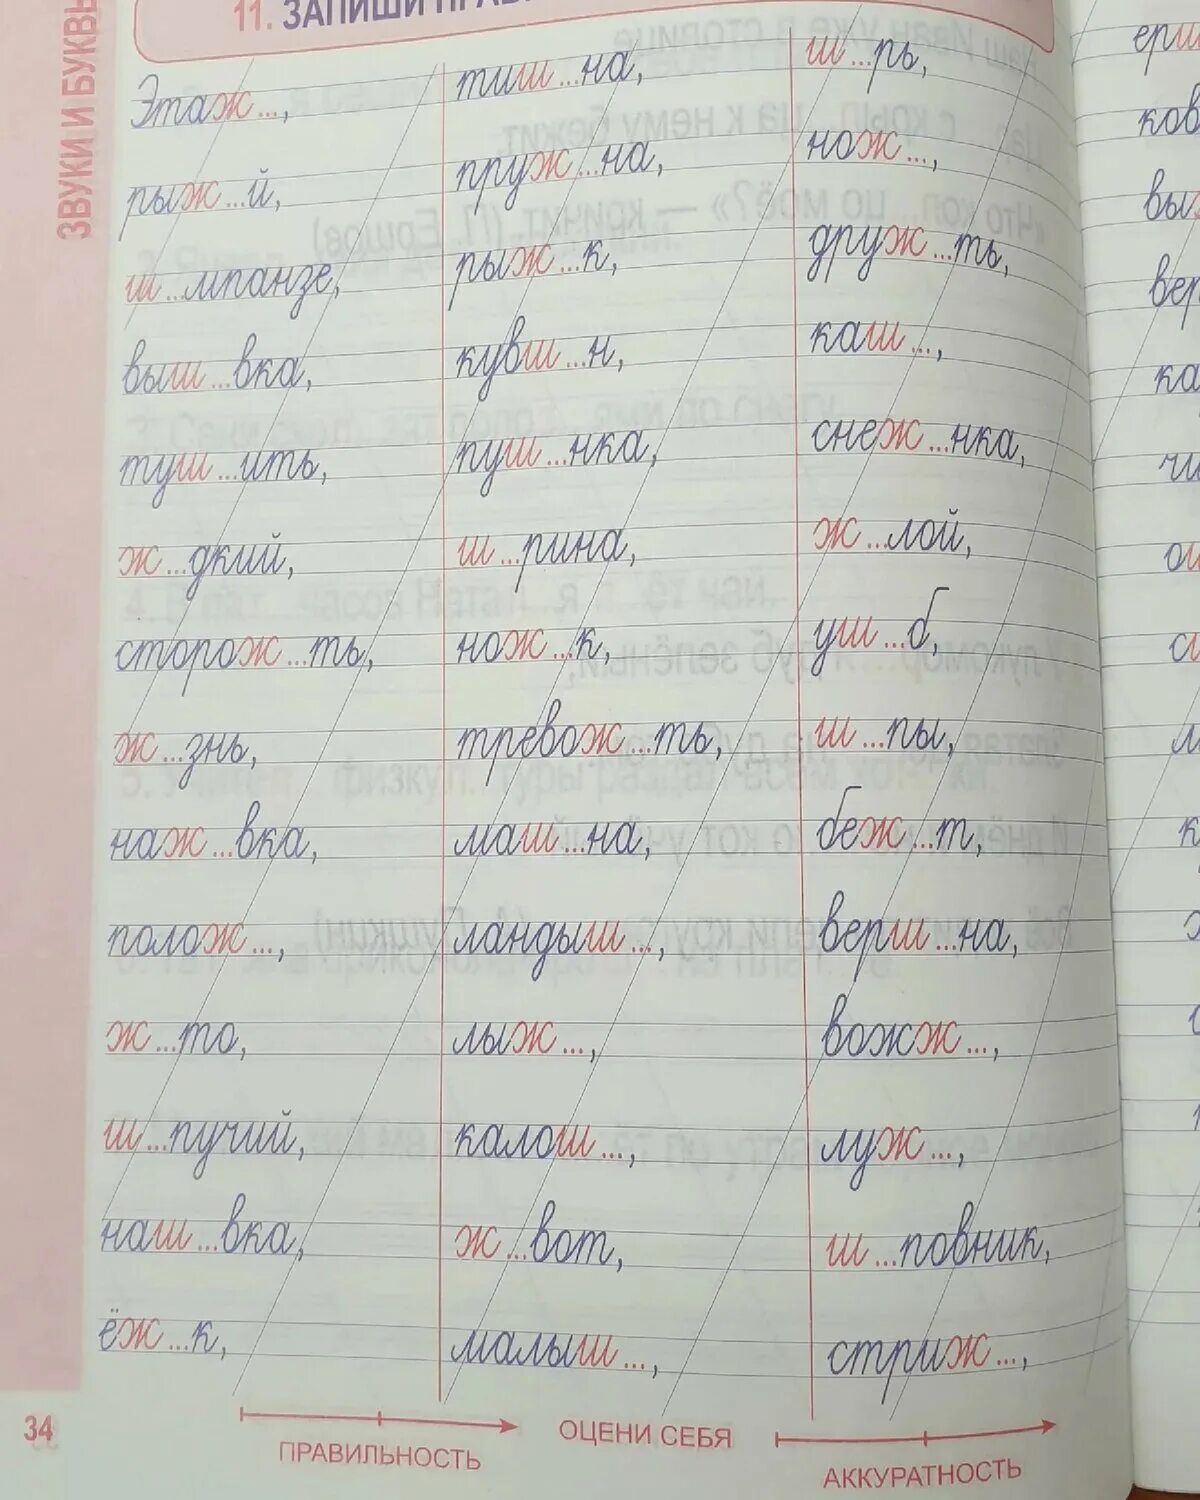 11. ЗАПИШИ
ЗВУКИ И БУКВЫ
Этаж...,
рыж...й,
ш...мпанзе,
выш...вка,
туш...ить,
ж...дкий,
сторож...ть,
ж...знь,
наж...вка,
полож...,
ж...то,
ш...пучий,
наш...вка,
ёж...к,
тиш...на,
пруж...на,
рыж...к,
кувш...н,
пуш...нка,
ш...рина,
нож...к,
тревож...ть,
маш...на,
ландыш...,
лыж...,
калош...,
ж...вот,
малыш...,
ш...рь,
нож...,
друж...ть,
каш...,
снеж...нка,
ж...лой,
уш...б,
ш...пы,
беж...т,
верш...на,
вожж...,
луж...,
ш...повник,
стриж...,
34
ПРАВИЛЬНОСТЬ
ОЦЕНИ СЕБЯ
АККУРАТНОСТЬ